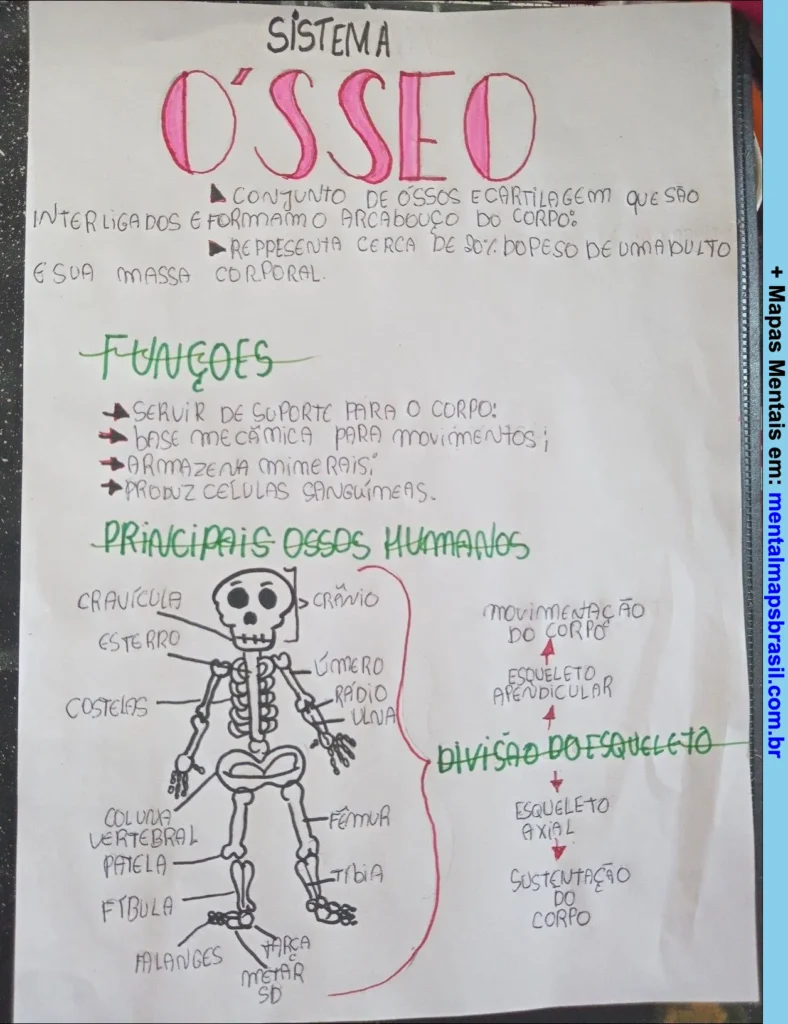 SISTEMA
ÓSSEO
CONJUNTO DE ÓSSOS E CARTILAGEM QUE SÃO
INTERLIGADOS E FORMAM O ARCABOUÇO DO CORPO:
REPPESENTA CERCA DE 20% DO PESO DE UM ADULTO
E SUA MASSA CORPORAL.
FUNÇOES
SERVIR DE SUPORTE PARA O CORPO:
BASE MECÂMICA PARA MOVIMENTOS;
ARMAZENA MIMERAIS;
PRODUZ CELULAS SANGUÍMEAS.
PRINCIPAIS OSSOS HUMANOS
CRAVÍCULA
CRÂNIO
ESTERRO
ÚMERO
COSTELAS
RÁDIO
ULNA
COLUNA
VERTEBRAL
FÊMUR
PATELA
TÍBIA
FÍBULA
FALANGES
TARÇA
METAR
SD
MOVIMENTAÇÃO
DO CORPO
ESQUELETO
APENDICULAR
DIVISÃO DO ESQUELETO
ESQUELETO
AXIAL
SUSTENTAÇÃO
DO
CORPO
+ Mapas Mentais em: mentalmapsbrasil.com.br